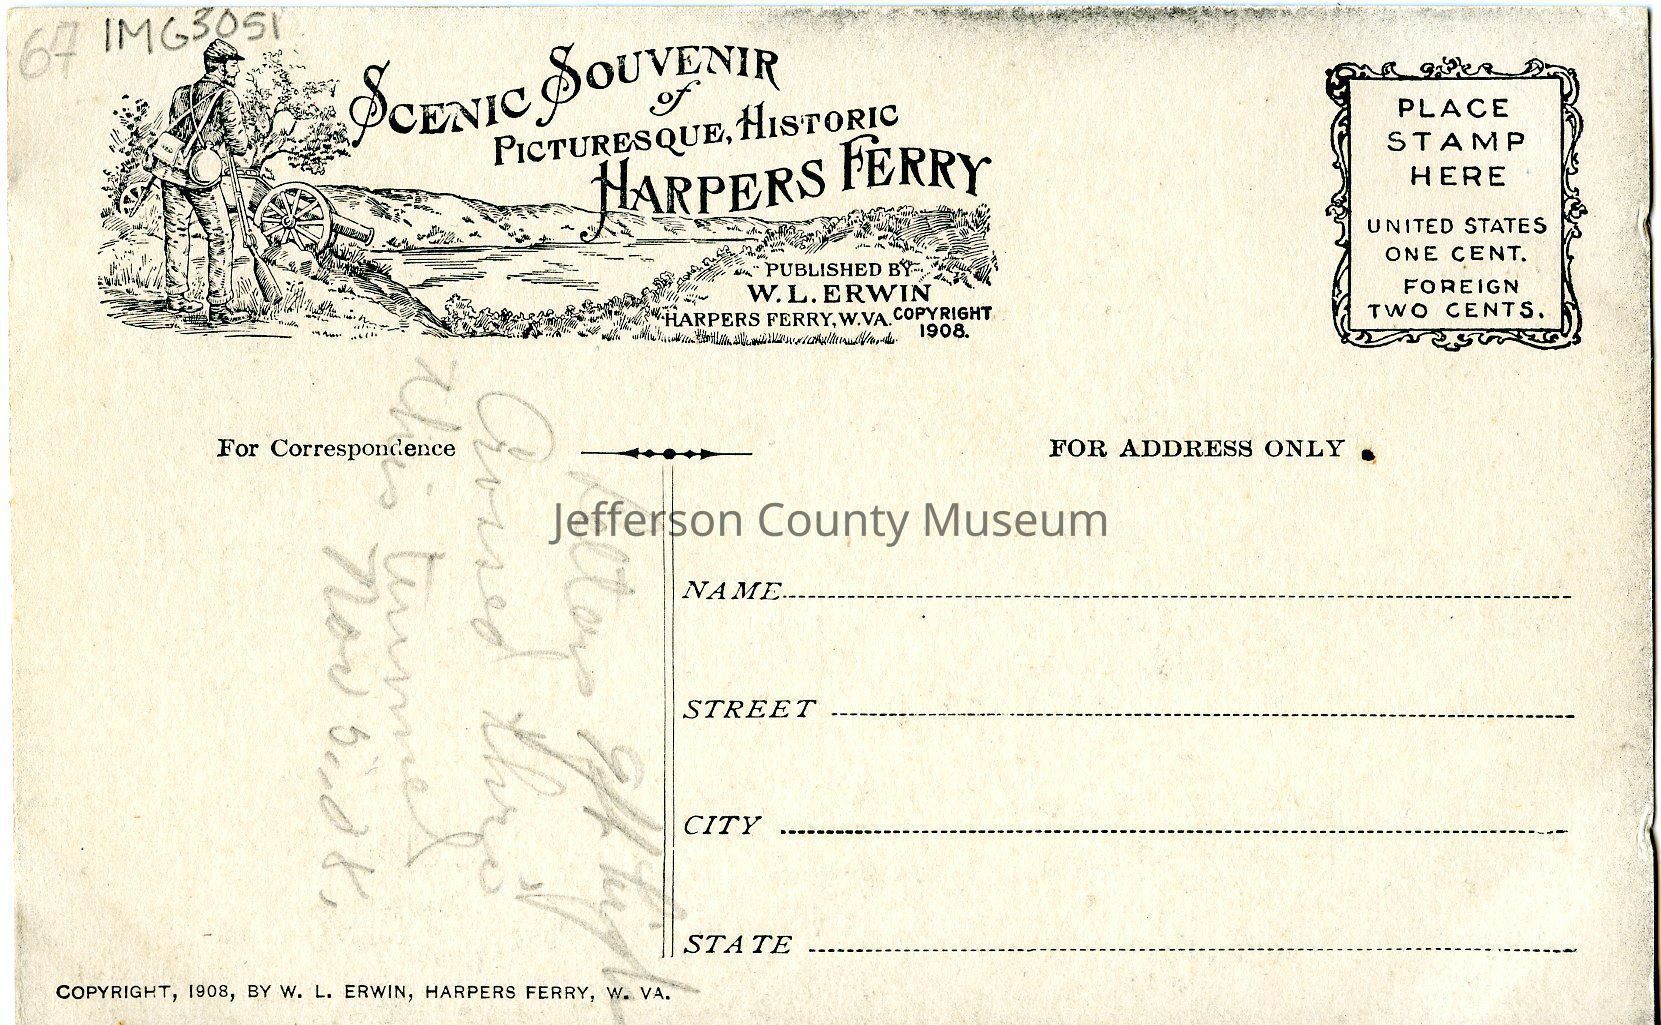 67 IMG3051
SCENIC SOUVENIR
of
PICTURESQUE, HISTORIC
HARPERS FERRY
PUBLISHED BY
W. L. ERWIN
HARPERS FERRY, W.VA. COPYRIGHT
1908.
PLACE
STAMP
HERE
UNITED STATES
ONE CENT.
FOREIGN
TWO CENTS.
For Correspondence
FOR ADDRESS ONLY
Jefferson County Museum
NAME
STREET
CITY
STATE
this tunnel
COPYRIGHT, 1908, BY W. L. ERWIN, HARPERS FERRY, W. VA.